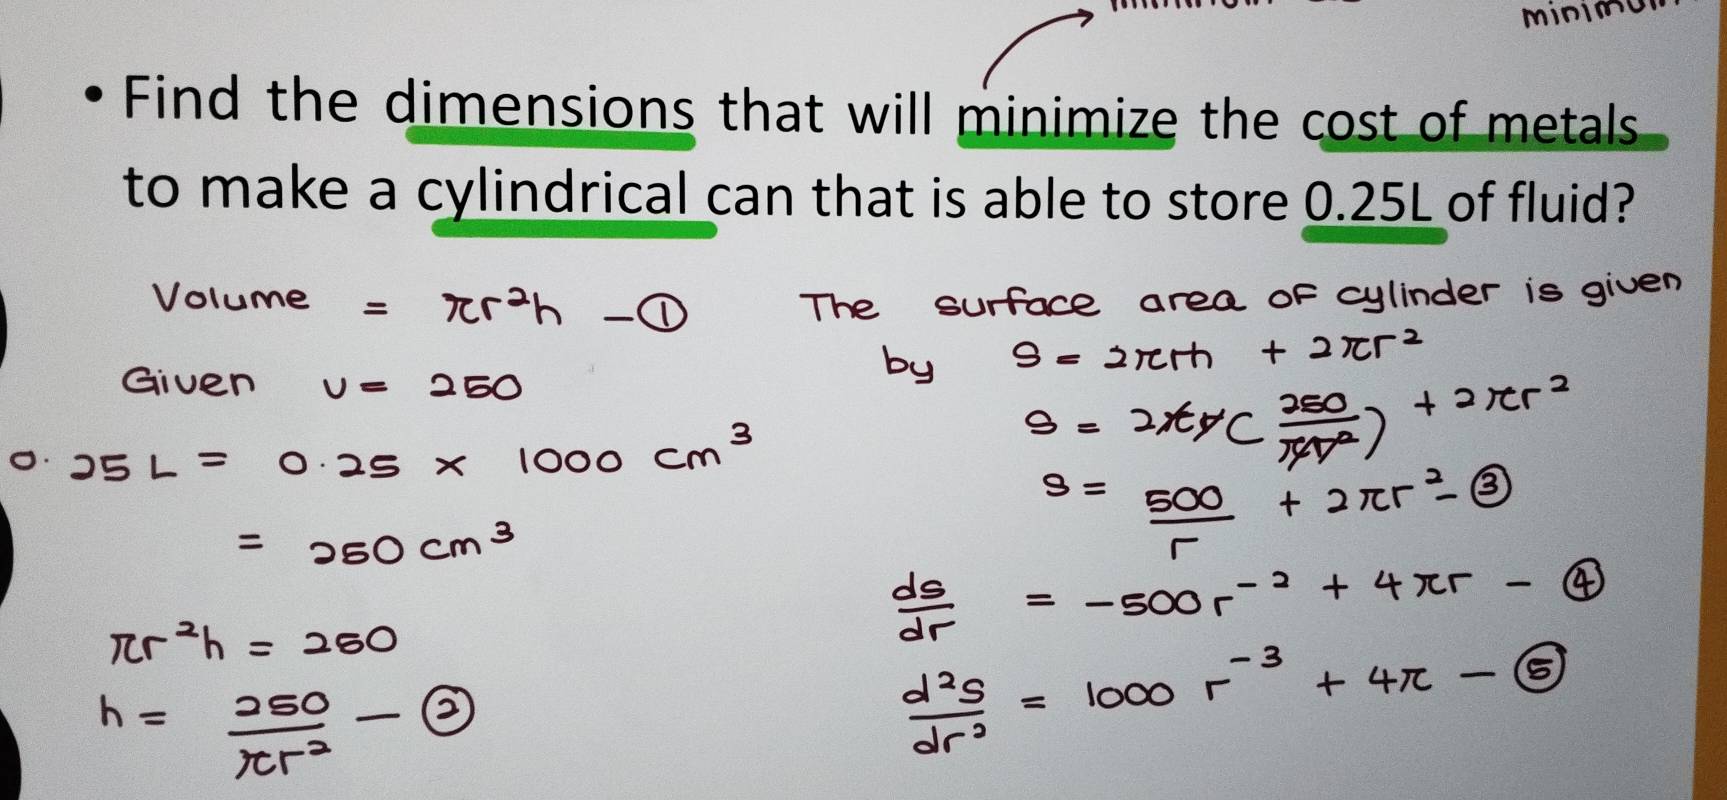 • Find the dimensions that will minimize the cost of metals
to make a cylindrical can that is able to store 0.25L of fluid?
Volume = πr²h - ①
Given v = 250
0.25 L = 0.25 × 1000 cm³
= 250 cm³
πr²h = 250
h = 250/πr² - ②
The surface area of cylinder is given
by S = 2πrh + 2πr²
S = 2πr(250/πr²) + 2πr²
S = 500/r + 2πr² - ③
ds/dr = -500r⁻² + 4πr - ④
d²s/dr² = 1000 r⁻³ + 4π - ⑤